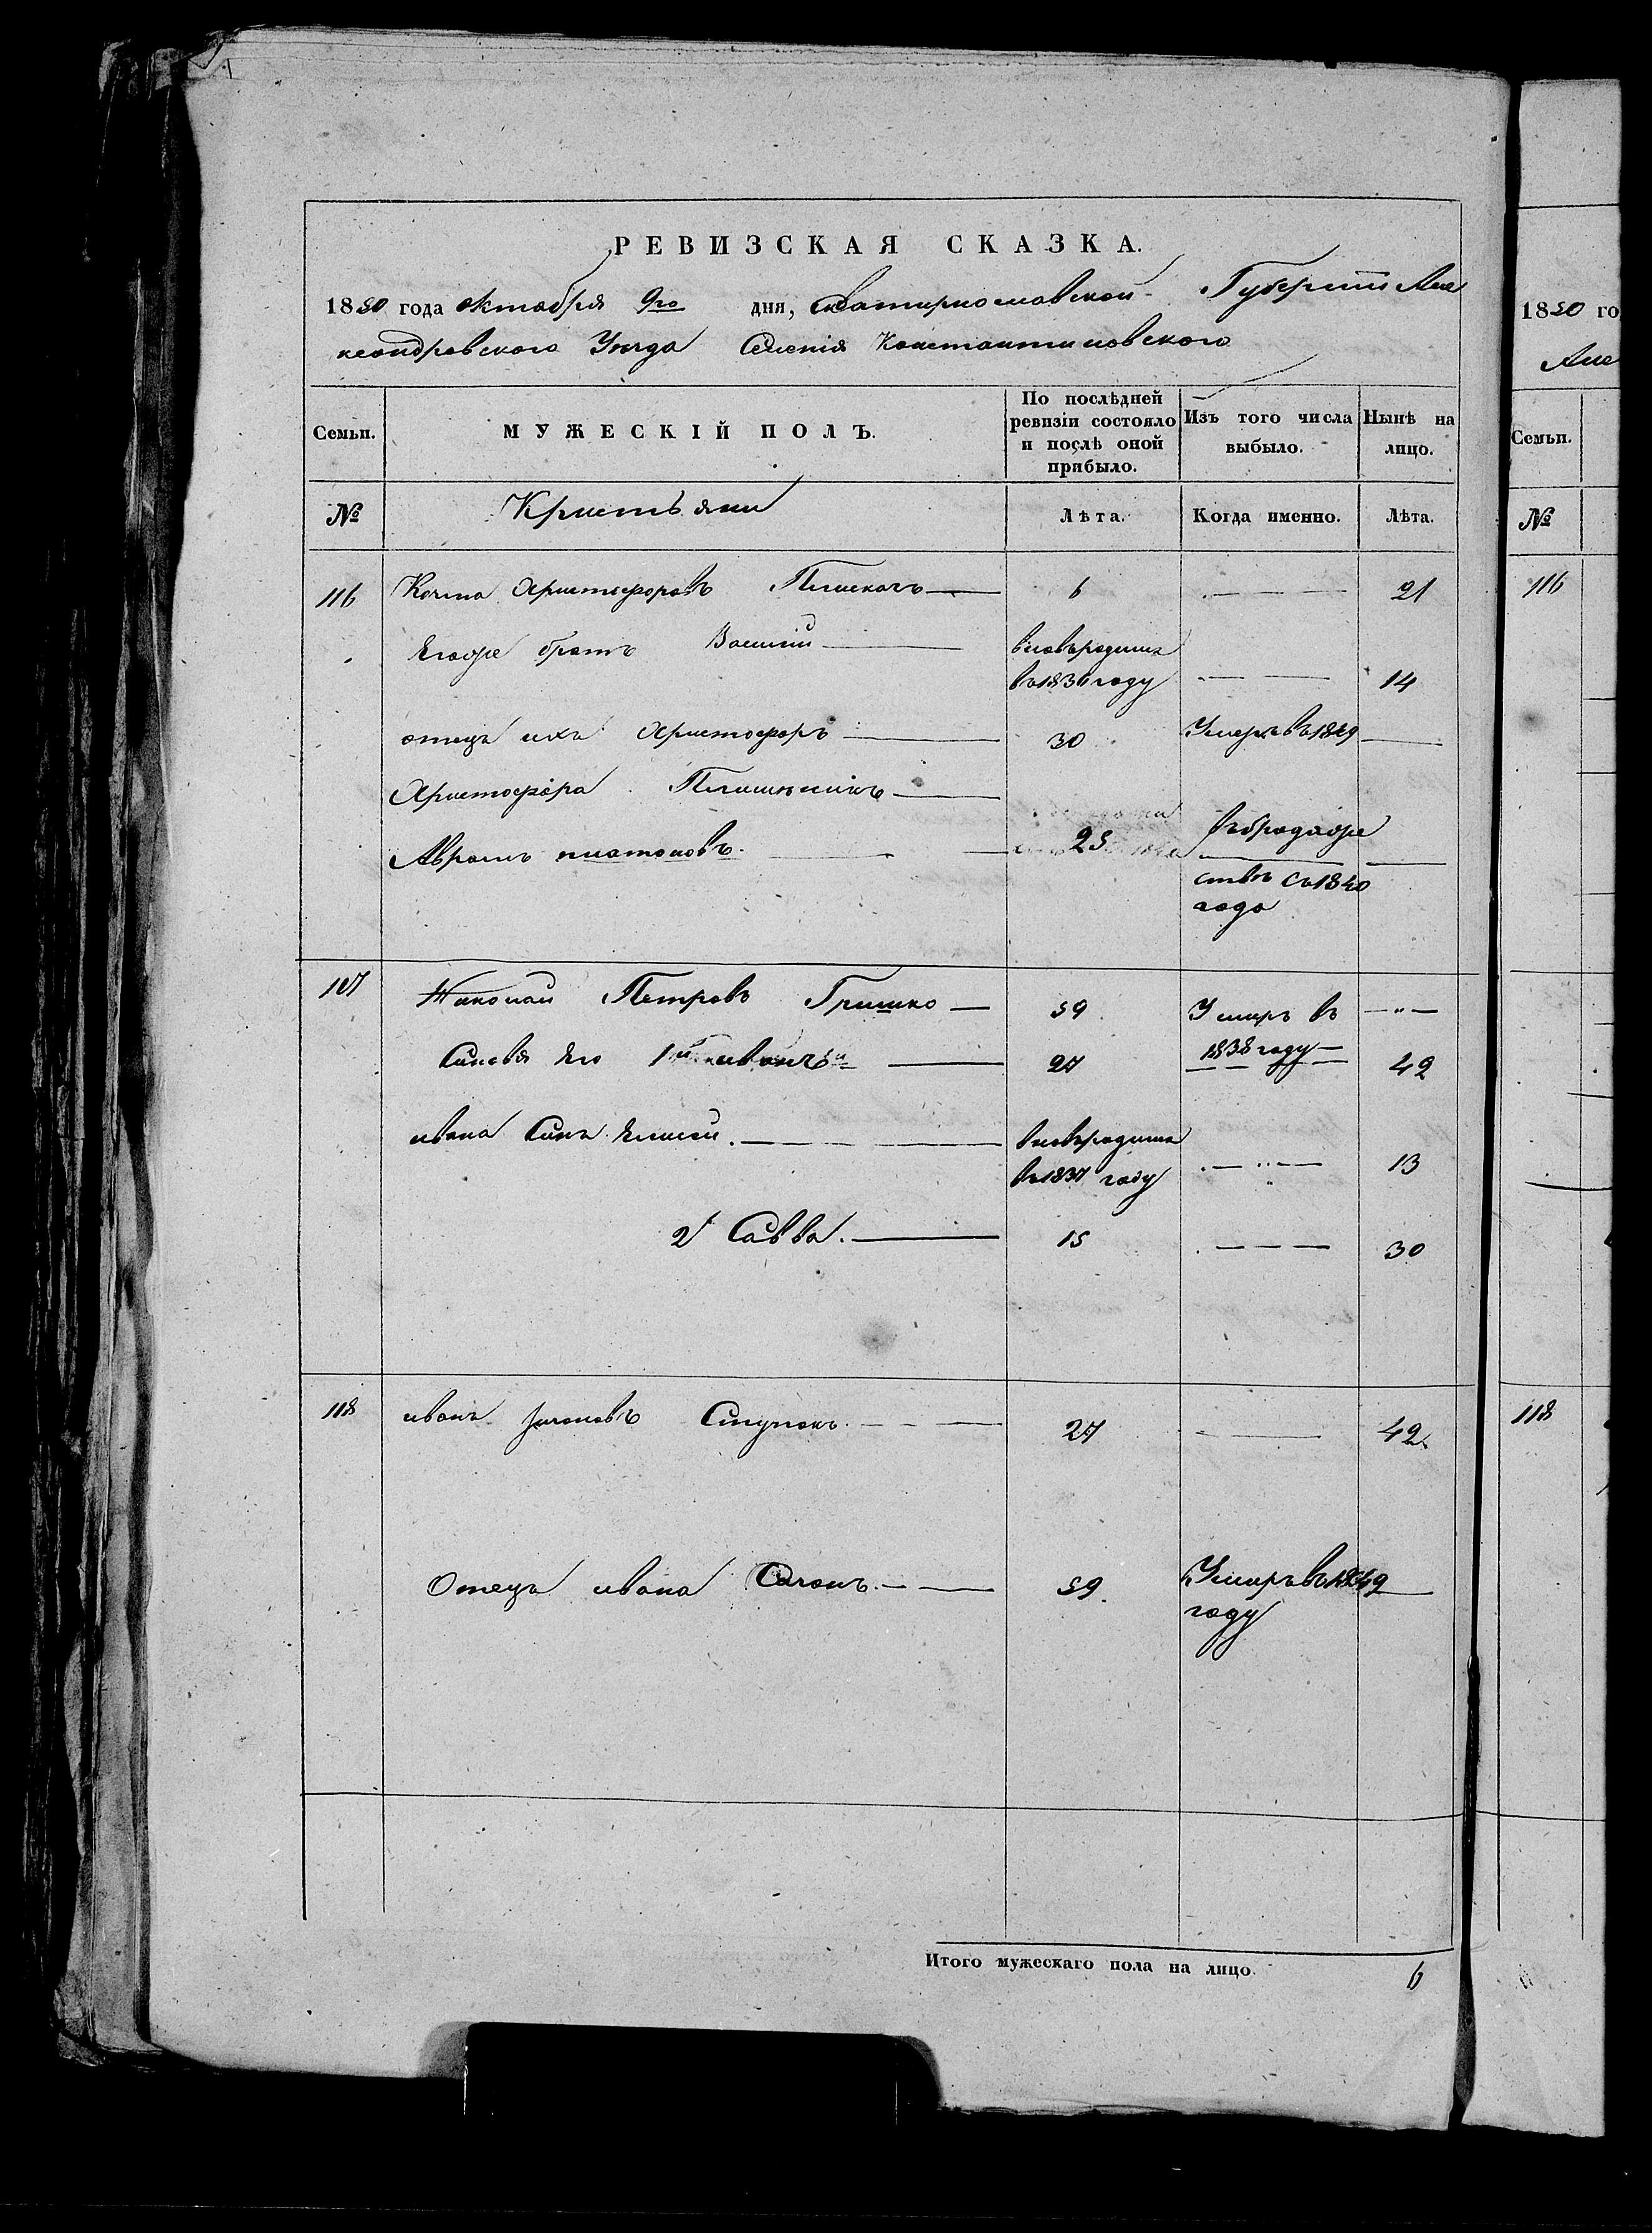 РЕВИЗСКАЯ СКАЗКА.
1850 года октября 9го дня, Екатиринославской Губернiи Але
ксандровского Уезда Селенiя Константиновского
Семьи.
МУЖЕСКІЙ ПОЛЪ.
По послѣдней ревизіи состояло и послѣ оной прибыло.
Изъ того числа выбыло.
Нынѣ на лицо.
№
Лѣта.
Когда именно.
Лѣта.
116 Христофоровъ 6 21
Егоже братъ Василiй вновьродился
въ1836году 14
отецъ ихъ Христофоръ 30 Умеръ въ1849
Христофора
Аврамъ платоновъ. 25 въбродяже
ствѣ съ1840
года
117 Николай Петровъ Гришко 59 Умеръ въ
1838 году
Синовя Его 1й иванъ 27 42
ивана Синъ Елисей. вновьродился
въ1837 году 13
2й Савва. 15 30
118 иванъ Ступакъ. 27 42
Отецъ ивана 59 Умеръ въ
году
Итого мужескаго пола на лицо. 6
1850 го
Але
Семьи.
№
116
118